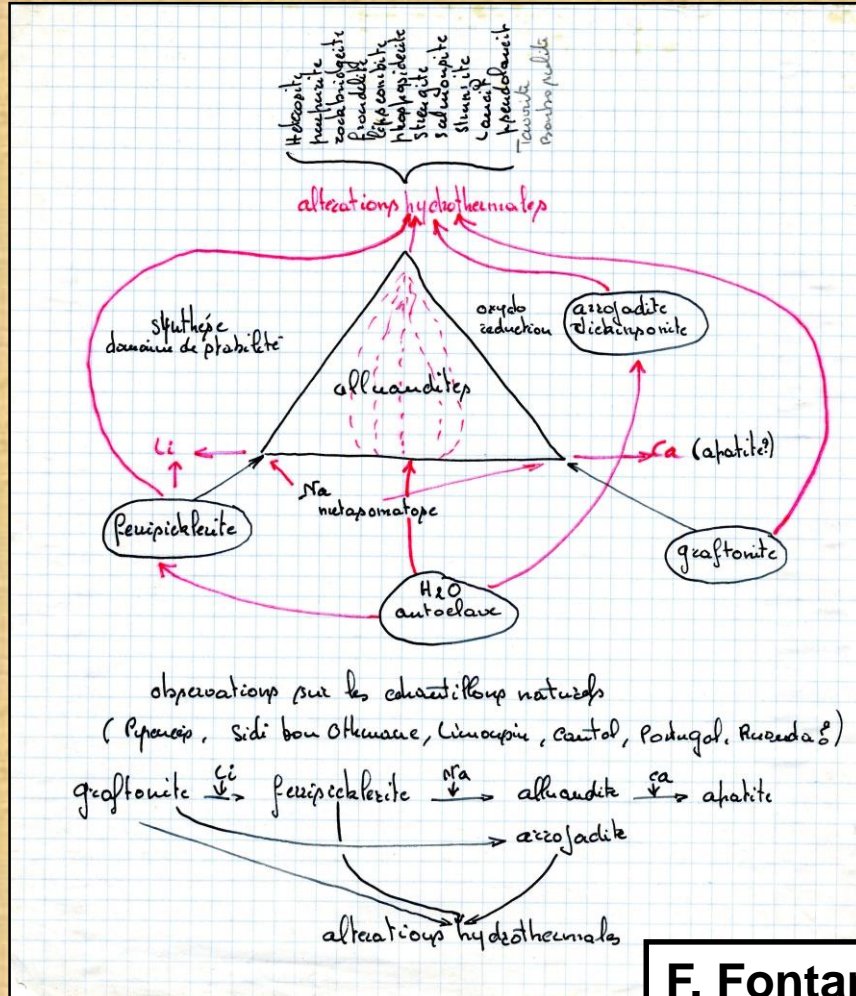 Heterosite
purpurite
rockbridgeite
frondelite
lipscombite
phosphosiderite
strengite
salmonsite
stewartite
laueite
pseudolaueite
Tavorite
Barbosalite
altérations hydrothermales
synthèse
domaine de stabilité
oxydo
réduction
arrojadite
dickinsonite
alluaudites
Li
Ca (apatite?)
Na
metasomatose
ferrisicklerite
graftonite
H2O
autoclave
observations sur les echantillons naturels
(Pyrenées, Sidi bou Othmane, Limousin, Cantal, Portugal, Rwanda?)
graftonite Li ferrisicklerite Na alluaudite Ca apatite
arrojadite
altérations hydrothermales
F. Fontan